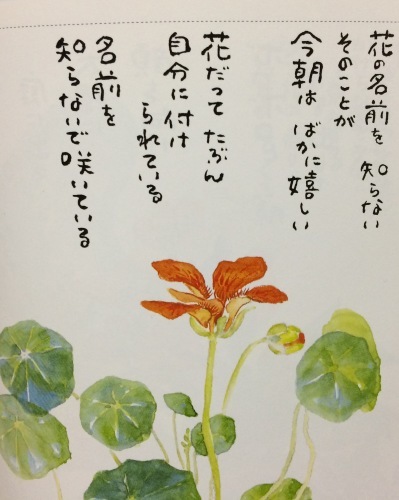 花の名前を 知らない
そのことが
今朝は ばかに嬉しい
花だって たぶん
自分に付け
られている
名前を
知らないで咲いている